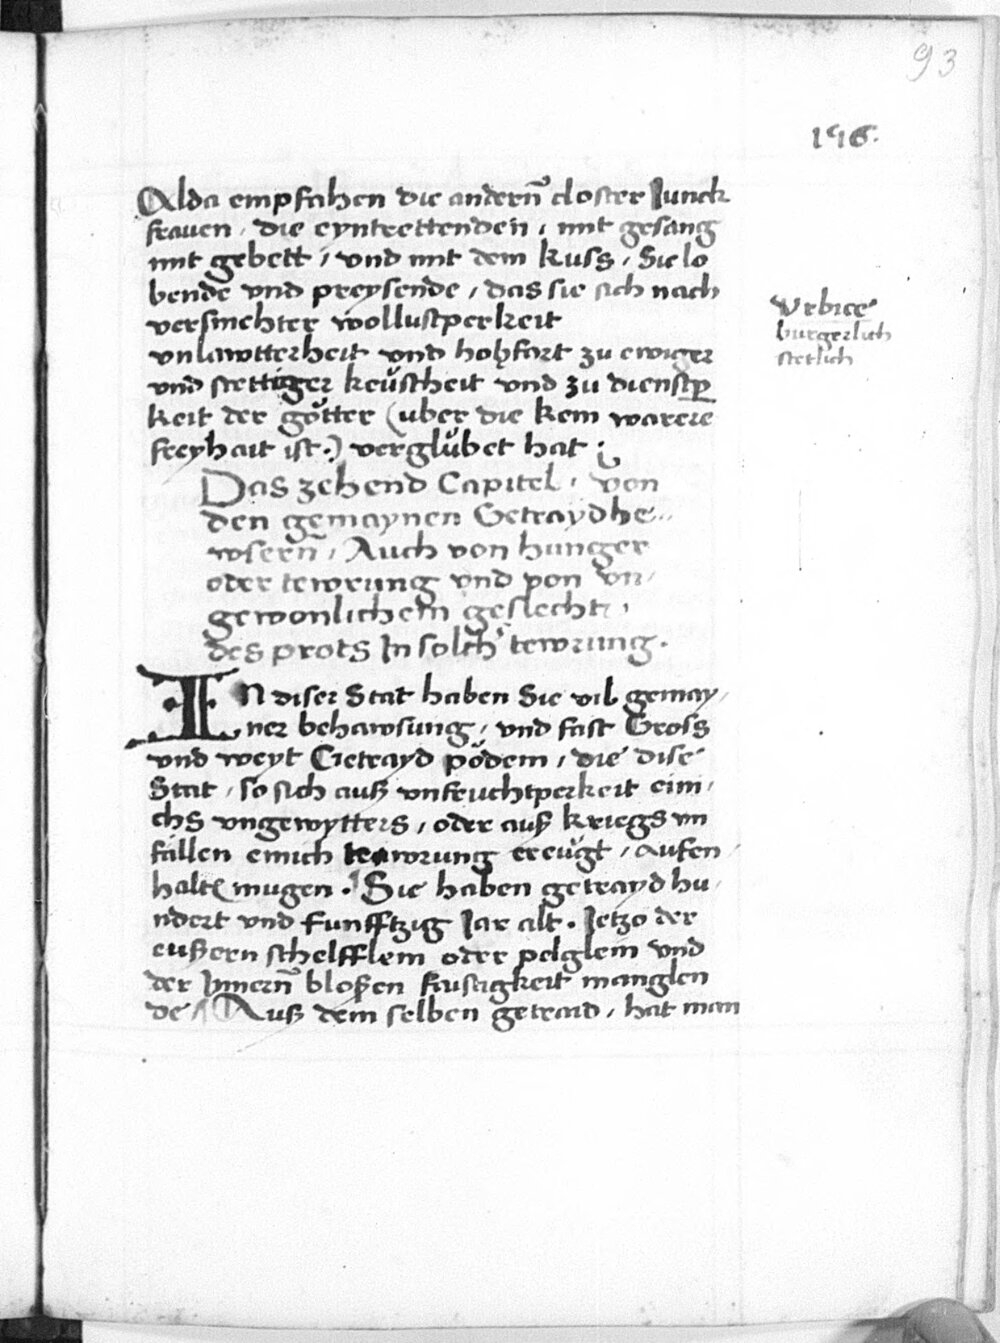 93
196.
Alda empfahen die andern̄ closter Junck
frauen / die eyntrettenden / mit gesang
mit gebett / vnd mit dem kuss / Sie lo
bende vnd preysende / das sie sich nach
versmehter wollustperkeit
vnlawtterheit vnd hohfart zu ewiger
vnd stettiger keüscheit vnd zu dienstp̲
keit der götter (uber die kein warere
freyhait ist.) verglübet hat ;
Vrbice
burgerlich
stetlich
Das zehend Capitel / von
den gemaynen Getraydhe„
wsern̄ / Auch von hunger
oder tewrung vnd von vn/
gewonlichem geslecht /
des prots In solch' tewrung.
IN diser Stat haben Sie vil gemay/
ner behawsung / vnd fast Gross
vnd weyt Getrayd pödem / die dise
Stat / so sich auß vnfeuchtperkeit eini/
chs vngewytters / oder auß kriegs vn
fällen einich tewrung ereügt / aufen/
halten mugen . Sie haben getrayd hu/
ndert vnd funfftzig Jar alt . Jetzo der
eußern schelfflem oder pelglein vnd
der Innern̄ bloßen faisigkeit manglen
de / Auß dem selben getraid / hat man